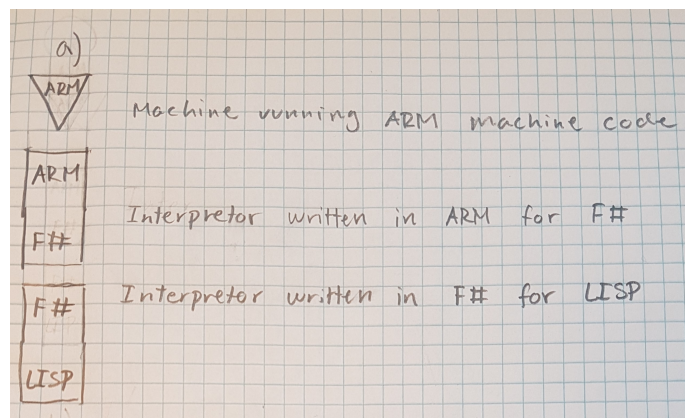 a)
ARM
Machine running ARM machine code
ARM
Interpretor written in ARM for F#
F#
F#
Interpretor written in F# for LISP
LISP